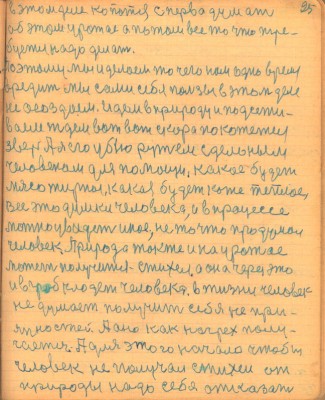 25
в этом деле копотся сперва думает
об этом урожае а потом все то что тре-
буется надо делат.
Поэтому мы и делаем то чего нам одно время
вредит мы сами себя ползы в этом деле
не осоздаем. Идем в природу и подсти-
ваем ждем вот вот скора покожется
звер А я его убю ружем сделоным
человеком для помощи, какое будет
мясо жырное, какая будет кожа тёплоя,
все это думки человека, а в процессе
можно увидет иное, не то что продумал
человек. Природа тоже и на урожае
может получится стихея, а она через это
и в гроб кладет человека, в жизни человек
не думает получит себя не при-
ятностей. А оно как на грех полу-
чается. А для этого начало чтобы
человек не получал стихеи от
природы надо себя отказат